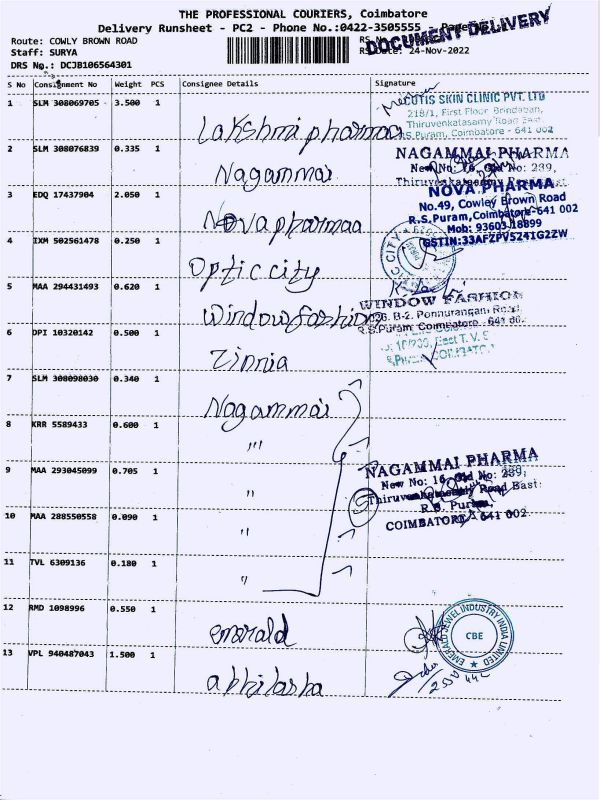 THE PROFESSIONAL COURIERS, Coimbatore
Delivery Runsheet - PC2 - Phone No.:0422-3505555 - Page No
DOCUMENT DELIVERY
Route: COWLY BROWN ROAD
Staff: SURYA
RS Date: 24-Nov-2022
DRS No.: DCJB106564301
S No Consignment No Weight PCS Consignee Details Signature
1 SLM 308069705 3.500 1 Lakshmi pharmaa
CUTIS SKIN CLINIC PVT. LTD
218/1, First Floor, Brindaban,
Thiruvenkatasamy Road East,
R.S.Puram, Coimbatore - 641 002
2 SLM 308076839 0.335 1 Nagammai
NAGAMMAI PHARMA
New No: 16, Old No: 239,
Thiruvenkatasamy Road East
3 EDQ 17437904 2.050 1 Nova pharmaa
NOVA PHARMA
No.49, Cowley Brown Road
R.S.Puram, Coimbatore-641 002
Mob: 93603-18899
GSTIN:33AFZPV5241G2ZW
4 IXM 502561478 0.250 1 Optic city
5 MAA 294431493 0.620 1 Window fashion
WINDOW FASHION
B-2, Ponnurangam Road,
R.S.Puram, Coimbatore - 641 00
6 DPI 10320142 0.500 1 Zinnia
East T.V.S
7 SLM 308098030 0.340 1 Nagammai
8 KRR 5589433 0.600 1 "'
9 MAA 293045099 0.705 1 "
NAGAMMAI PHARMA
New No: 16, Old No: 239,
Thiruvenkatasamy Road East:
R.S. Puram,
COIMBATORE - 641 002
5
10 MAA 288550558 0.090 1 "
11 TVL 6309136 0.180 1 "
12 RMD 1098996 0.550 1 emerald
EMERALD JEWEL INDUSTRY INDIA LIMITED
CBE
13 VPL 940487043 1.500 1 abhilasha